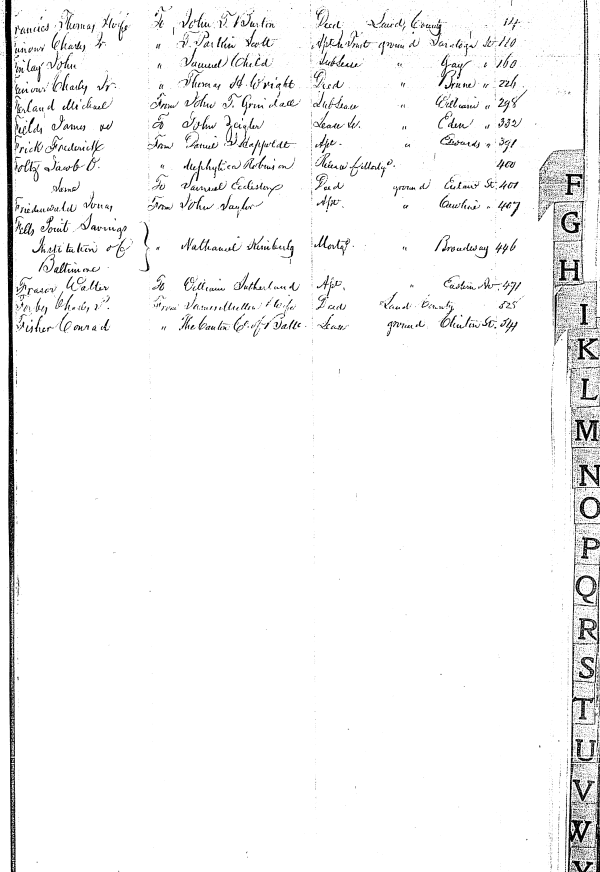 Francies Thomas & wife To John T. Burton Deed Land, County 54
Charles Jr. " T. Parkin Scott in Trust ground Saratoga St 110
Finlay John " Samuel Child Sub Lease " Gay " 160
Charles Jr. " Thomas H. Wright Deed " Brune " 224
Michael From John T. Grindall Sub Lease " William " 298
Fields James To John Zeigler Lease " Eden " 332
Frick Frederick From Daniel Apt. " Edwards " 391
Foltz Jacob Robinson Release of Mortg. 400
Same To Samuel Eccleston Deed ground Eutaw St. 401
Friedenwald Jonas From John Taylor Apt. " Caroline " 407
Fells Point Savings
Institution of " Nathaniel Mortg. " Broadway 446
Baltimore
Frazer Walter To William Sutherland Apt. " Eastern Av. 471
Charles From & Wife Deed Land County 525
Fisher Conrad " The Canton Co. of Balto. Lease ground Clinton St. 544
F
G
H
I
K
L
M
N
O
P
Q
R
S
T
U
V
W
Y